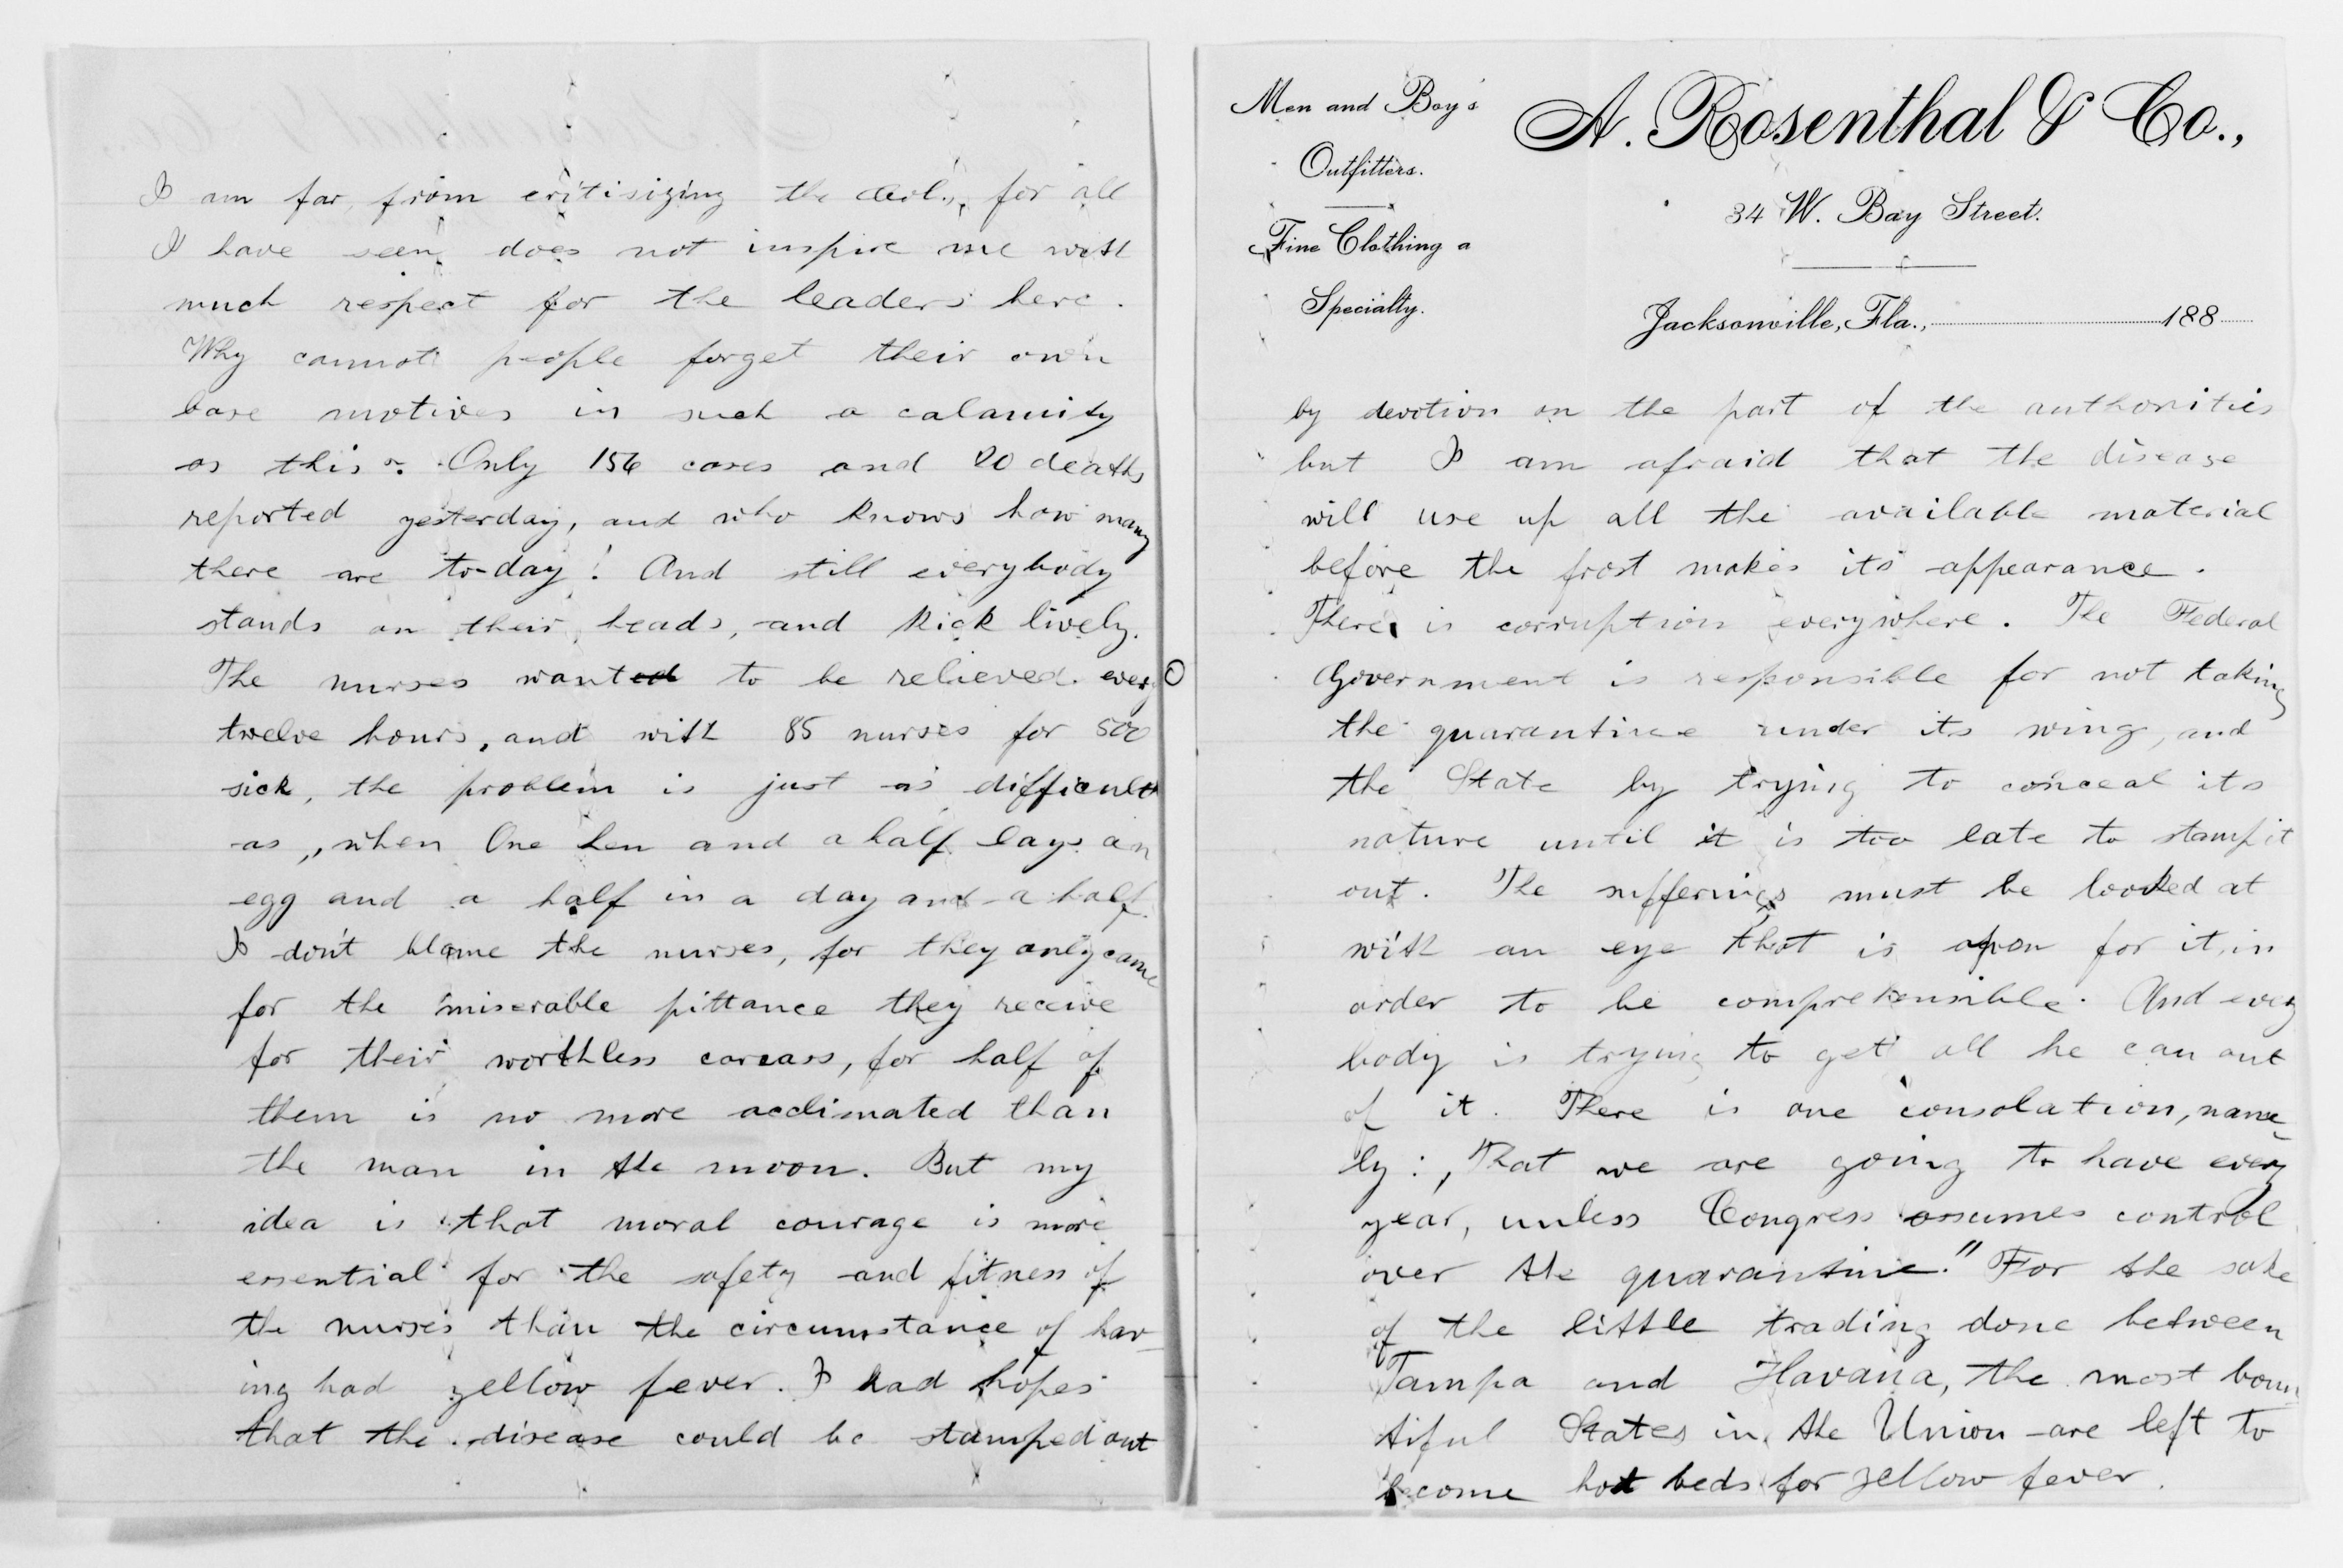 I am far from critisizing the Col., for all
I have seen does not inspire me with
much respect for the leaders here.
Why cannot people forget their own
base motives in such a calamity
as this? Only 156 cases and 20 deaths
reported yesterday, and who knows how many
there are to-day! And still everybody
stands on their heads, and kick lively.
The nurses wanted to be relieved every
twelve hours, and with 85 nurses for 500
sick, the problem is just as difficult
as „when One hen and a half lays an
egg and a half in a day and a half.
I don't blame the nurses, for they only came
for the miserable pittance they receive
for their worthless carcass, for half of
them is no more acclimated than
the man in the moon. But my
idea is that moral courage is more
essential for the safety and fitness of
the nurses than the circumstance of hav-
ing had yellow fever. I had hopes
that the disease could be stamped out
Men and Boy's
Outfitters.
Fine Clothing a
Specialty.
A. Rosenthal & Co.,
34 W. Bay Street.
Jacksonville, Fla., 188
by devotion on the part of the authorities
but I am afraid that the disease
will use up all the available material
before the frost makes its appearance.
There is corruption everywhere. The Federal
Government is responsible for not taking
the quarantine under its wing, and
the State by trying to conceal its
nature until it is too late to stamp it
out. The sufferings must be looked at
with an eye that is open for it, in
order to be comprehensible. And every
body is trying to get all he can out
of it. There is one consolation, name-
ly: „That we are going to have every
year, unless Congress assumes control
over the quarantine." For the sake
of the little trading done between
Tampa and Havana, the most boun
tiful States in the Union are left to
become hot beds for yellow fever.